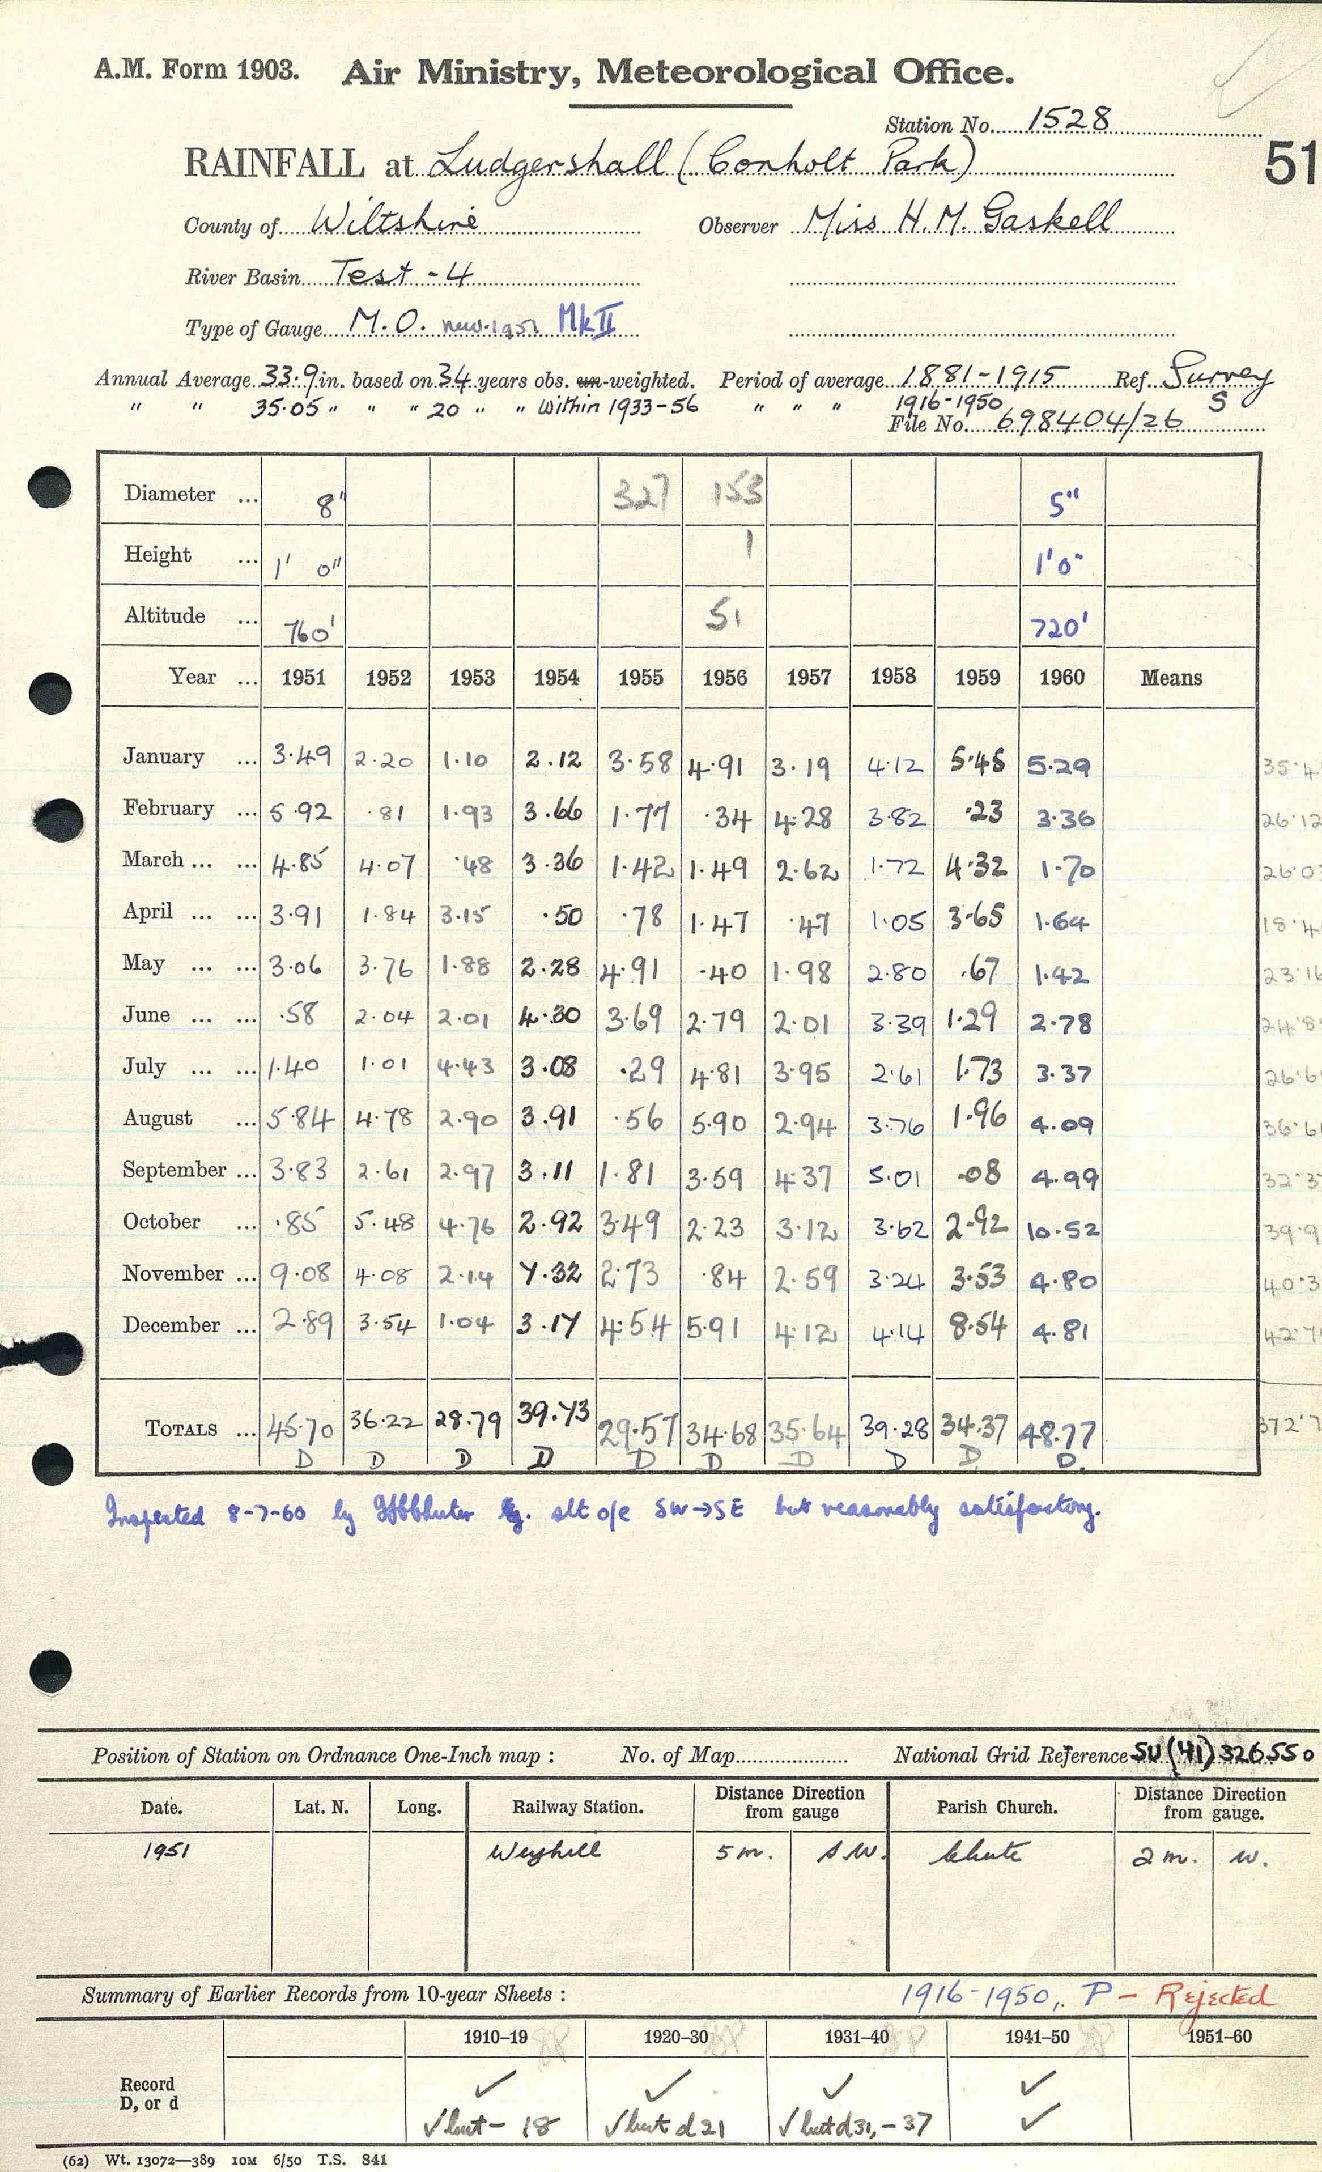 A.M. Form 1903. Air Ministry, Meteorological Office.
Station No. 1528
51
RAINFALL at Ludgershall (Conholt Park)
County of Wiltshire Observer Miss H. M. Gaskell
River Basin Test - 4
Type of Gauge M.O. new 1951 Mk II
Annual Average 33.9 in. based on 34 years obs. un-weighted. Period of average 1881-1915 Ref. Survey
" " 35.05 " " " 20 " " Within 1933-56 " " " 1916-1950 S
File No. 698404/26
Diameter ... 8" 327 153 5"
Height ... 1' 0" 1 1'0"
Altitude ... 760' 51 720'
Year ... 1951 1952 1953 1954 1955 1956 1957 1958 1959 1960 Means
January ... 3.49 2.20 1.10 2.12 3.58 4.91 3.19 4.12 5.45 5.29 35.4
February ... 5.92 .81 1.93 3.66 1.77 .34 4.28 3.82 .23 3.36 26.12
March ... ... 4.85 4.07 .48 3.36 1.42 1.49 2.62 1.72 4.32 1.70 26.0
April ... ... 3.91 1.84 3.15 .50 .78 1.47 .47 1.05 3.65 1.64 18.4
May ... ... 3.06 3.76 1.88 2.28 4.91 .40 1.98 2.80 .67 1.42 23.16
June ... ... .58 2.04 2.01 4.30 3.69 2.79 2.01 3.39 1.29 2.78 24.8
July ... ... 1.40 1.01 4.43 3.08 .29 4.81 3.95 2.61 1.73 3.37 26.6
August ... 5.84 4.78 2.90 3.91 .56 5.90 2.94 3.76 1.96 4.09 36.6
September ... 3.83 2.61 2.97 3.11 1.81 3.59 4.37 5.01 .08 4.99 32.3
October ... .85 5.48 4.76 2.92 3.49 2.23 3.12 3.62 2.92 10.52 39.9
November ... 9.08 4.08 2.14 7.32 2.73 .84 2.59 3.24 3.53 4.80 40.3
December ... 2.89 3.54 1.04 3.17 4.54 5.91 4.12 4.14 8.54 4.81 42.7
TOTALS ... 45.70 36.22 28.79 39.73 29.57 34.68 35.64 39.28 34.37 48.77 372.7
D D D D D D D D D D.
Inspected 8-7-60 by alt o/e SW→SE but reasonably satisfactory.
Position of Station on Ordnance One-Inch map : No. of Map National Grid Reference SU (41) 326550
Date. Lat. N. Long. Railway Station. Distance from gauge Direction Parish Church. Distance from gauge. Direction
1951 Weyhill 5 m. S.W. Chute 2 m. W.
Summary of Earlier Records from 10-year Sheets : 1916-1950, P - Rejected
1910-19 1920-30 1931-40 1941-50 1951-60
Record ✓ ✓ ✓ ✓
D, or d ✓ but - 18 ✓ but d 21 ✓ but d 31, - 37 ✓
(62) Wt. 13072—389 10M 6/50 T.S. 841